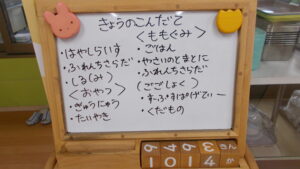 きょうのこんだて
・はやしらいす
・ふれんちさらだ
・しる(み)
<おやつ>
・ぎゅうにゅう
・たいやき
<ももぐみ>
・ごはん
・やさいのとまとに
・ふれんちさらだ
(ごごしょく)
・すーぷすぱげてぃー
・くだもの